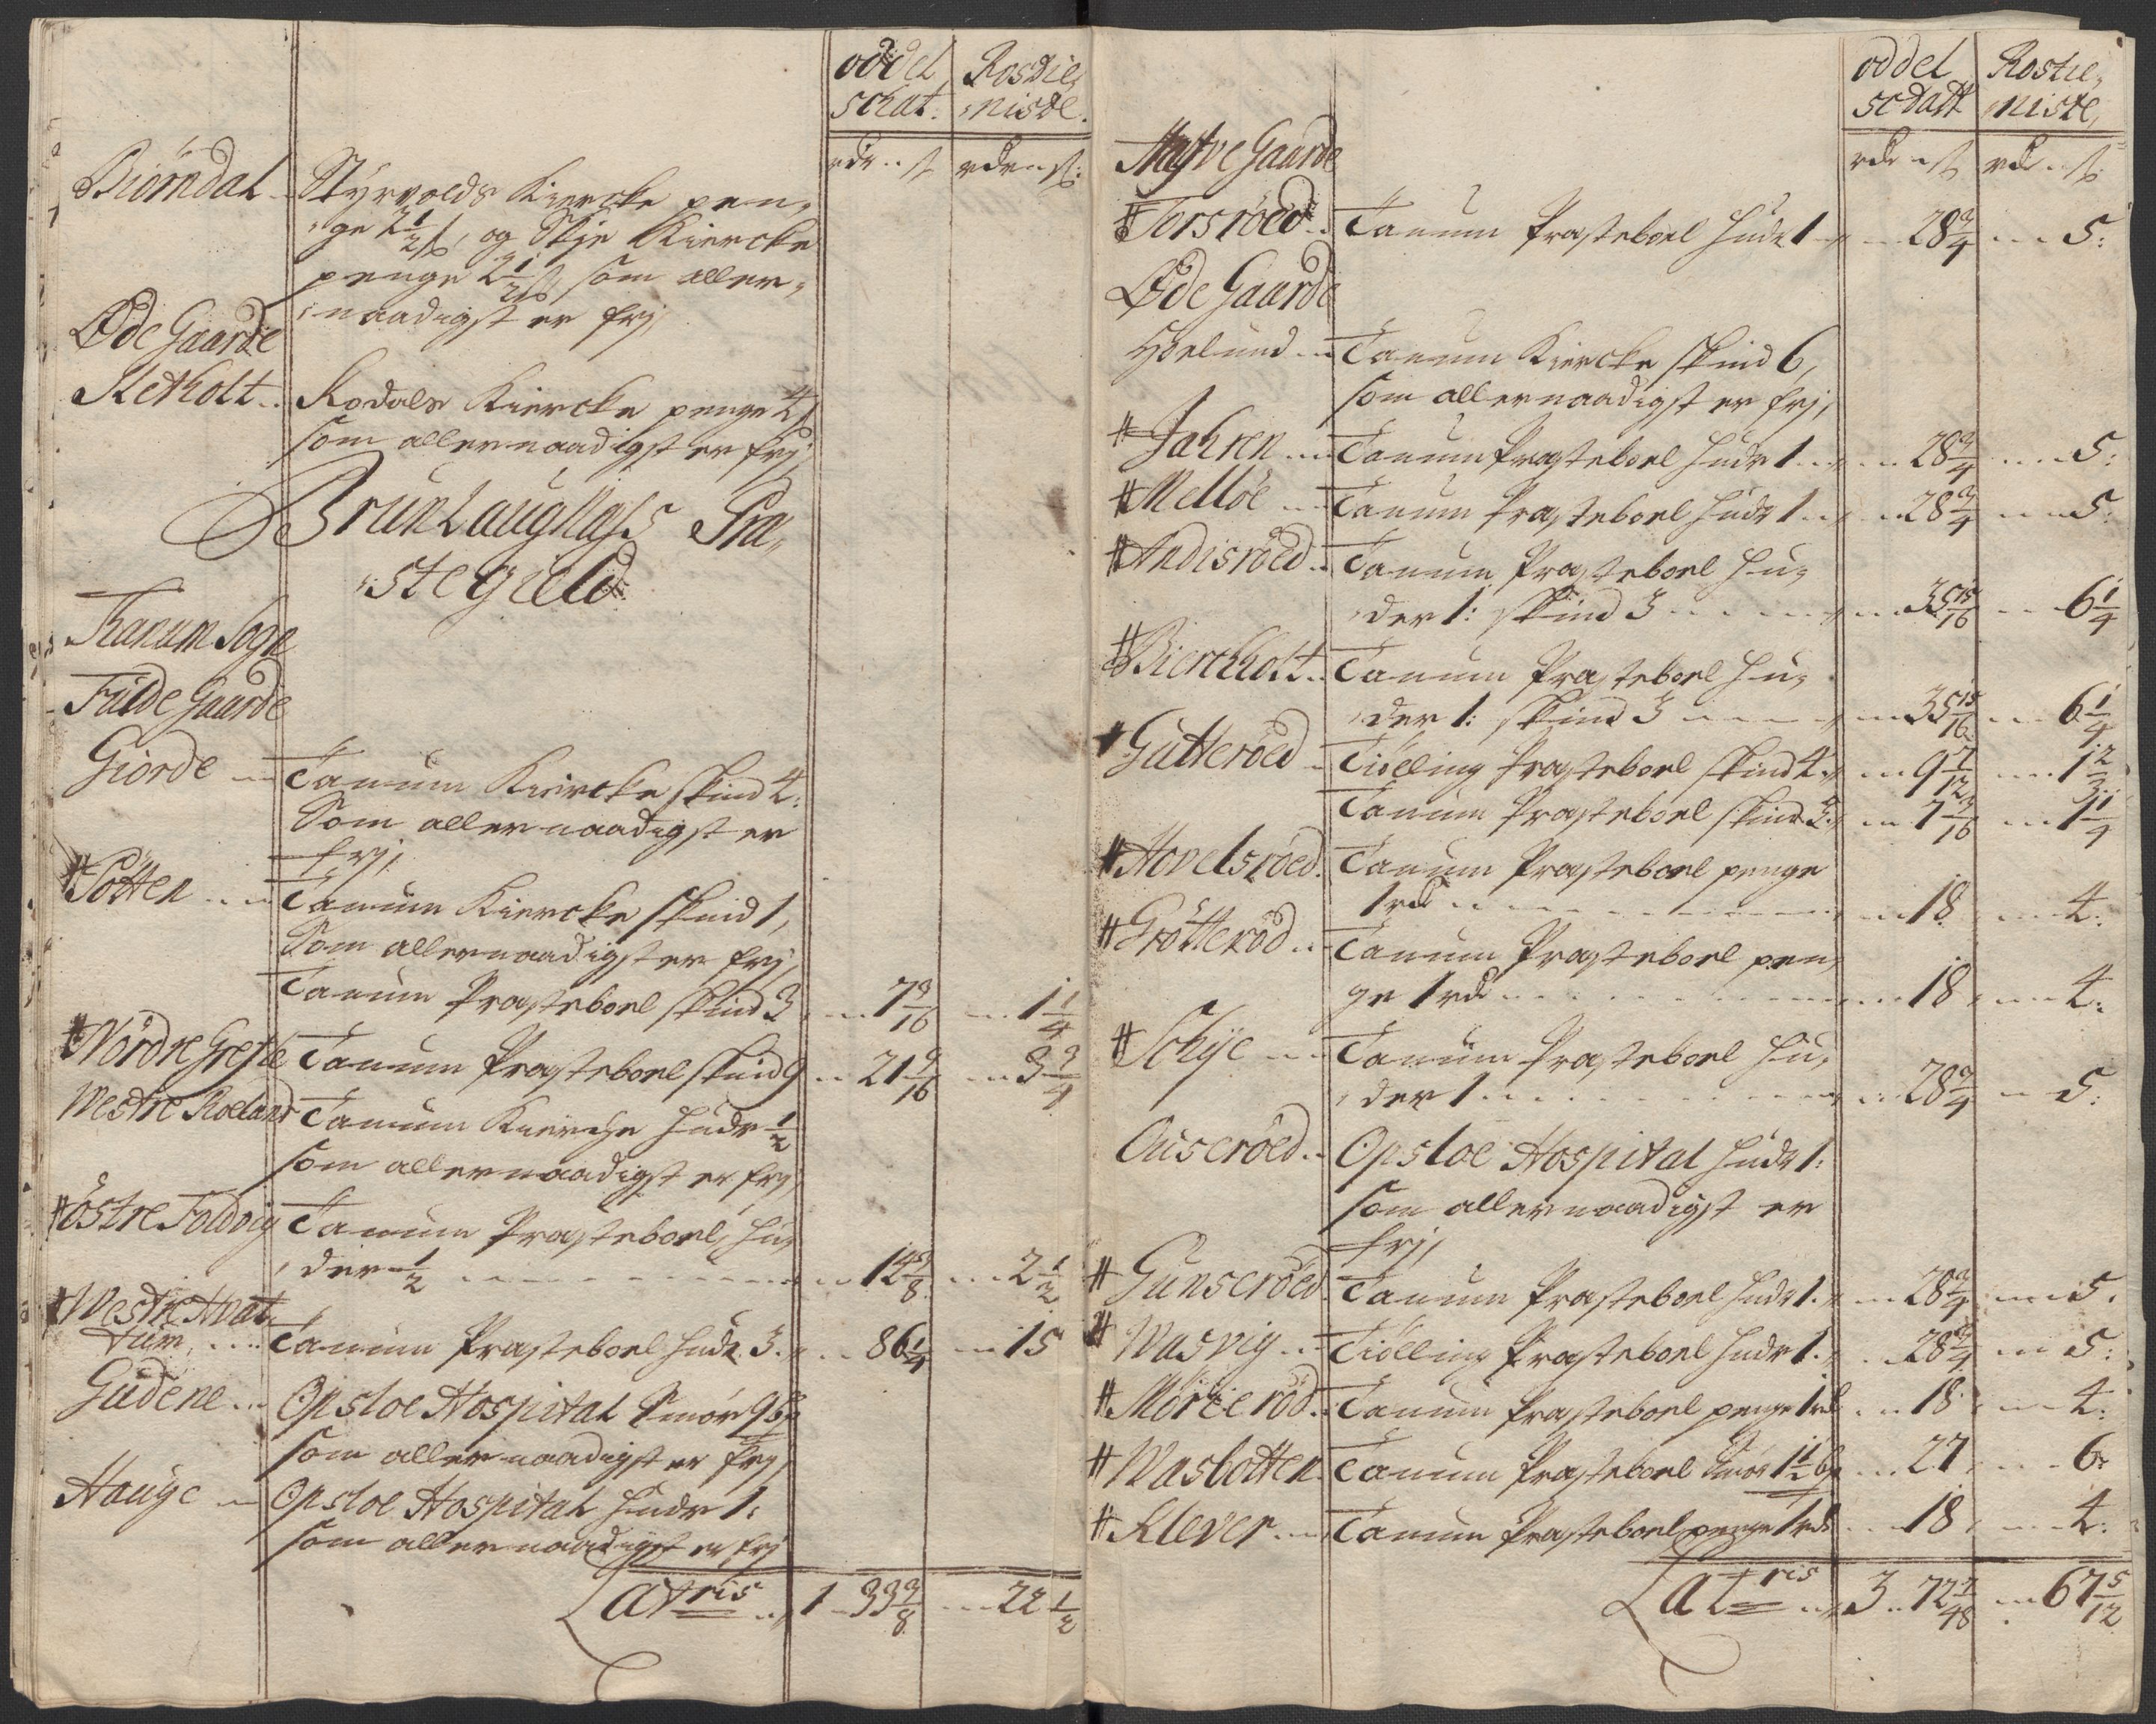 oddel Rosdie,
schat. niste.
rdr ß rdr ß:
Biörndal Styrvolds Kiercke pen,
ge 2 1/2 ß, og Skje Kiercke
penge 2 1/2 ß, som aller,
naadigst er frj,
Øde Gaarde
Sletholt Kodals Kiercke penge 4 ß
som allernaadigst er frj,
Brunlaugnæs Præ,
stegield
Thanum Sogn
Fulde Gaarde
Giorde Tanum Kiercke skind 4:
Som allernaadigst er
frj,
# Totten Tanum Kiercke skind 1,
Som allernaadigst er frj,
Tanum Præsteboel skind 3 7 3/16 1 1/4
# Nordre Grefle Tanum Præsteboel skind 9 21 9/16 3 3/4
Westre Roeland Tanum Kierche Huder 1/2
som allernaadigst er frj,
# Östre Foldvig Tanum Præsteboel, Hu,
der 1/2 14 3/8 2 1/2
# Westre Hval,
tum Tanum Præsteboel Hude. 3. 86 1/4 15
Gudene Opsloe Hospital Smör 9 b℔
som allernaadigst er frj,
Hauge Opsloe Hospital Huder 1:
som allernaadigst er frj
Lat<sup>ris</sup> 1 33 3/8 22 1/2
oddel Rostie,
schatt niste,
rdr ß rdr ß
Halfve Gaarde
# Torsröed Tanum Præsteboel Hude 1 28 3/4 5:
Øde Gaarde
Hoelund Tanum Kiercke skind 6,
som allernaadigst er frj,
# Jahren Tanum Præsteboel Huder 1 28 3/4 5:
# Melloe Tanum Præsteboel Hude 1 28 3/4 5:
# Andisröed Tanum Præsteboel Hu,
der 1: skind 3 35 15/16 6 1/4
# Bierckholt Tanum Præsteboel Hu,
der 1: skind 3 35 15/16 6 1/4
# Gutteröed Tiölling Præsteboel skind 4 9 7/12 1 2/3
Tanum Præsteboel skind 3. 7 3/16 1 1/4
# Hovelsröed Tanum Præsteboel penge
1 rd 18 4:
# Grötteröd Tanum Præsteboel pen,
ge 1 rd 18 4:
# Schije Tanum Præsteboel Hu,
der 1 28 3/4 5:
Ouseröed Opsloe Hospital Hude 1:
som allernaadigst er
frj,
# Gunseröed Tanum Præsteboel Hude 1. 28 3/4 5.
# Wasvig Tiölling Præsteboel Hude 1. 28 3/4 5:
# Möreeröd Tanum Præsteboel penge 1 rd 18 4:
# Wasbotten Tanum Præsteboel Smör 1 1/2 b℔ 27 6:
# Klever Tanum Præsteboel penge 1 rd: 18 4:
Lat<sup>ris</sup> 3 72 7/48 67 5/12